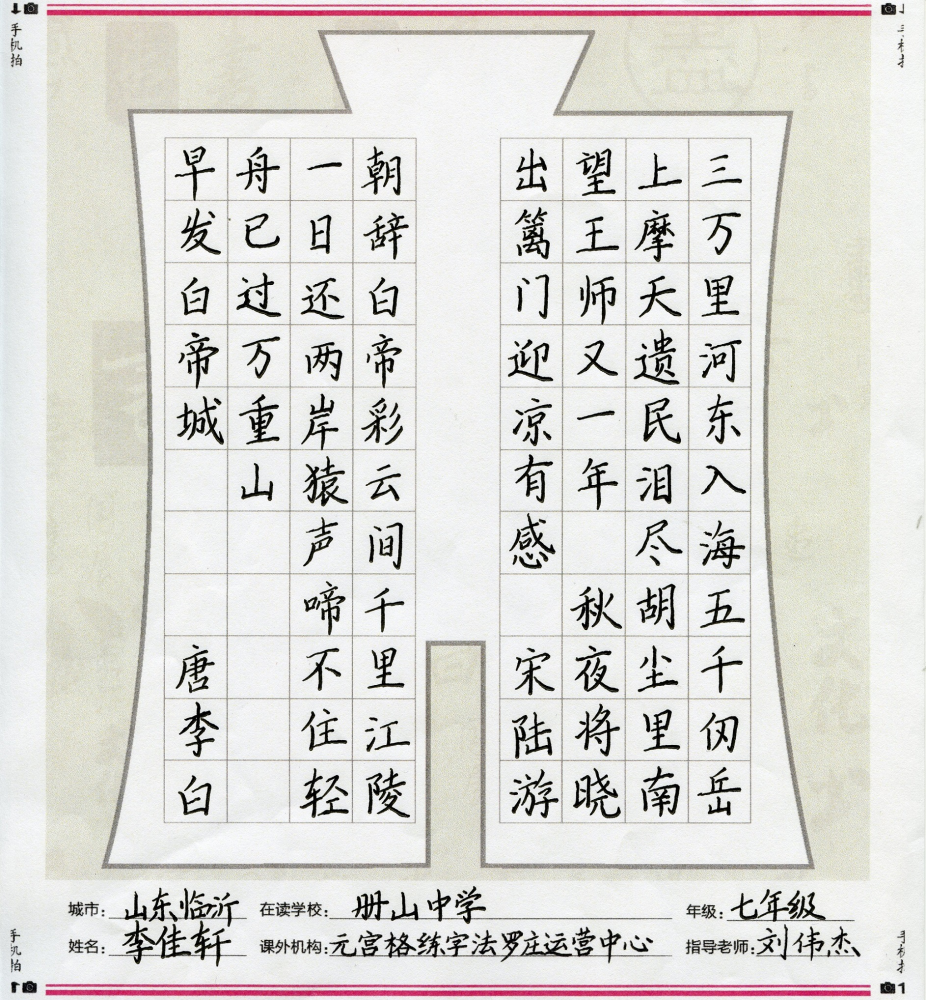 手机拍
手机拍
三万里河东入海五千仞岳
上摩天遗民泪尽胡尘里南
望王师又一年 秋夜将晓
出篱门迎凉有感 宋陆游
朝辞白帝彩云间千里江陵
一日还两岸猿声啼不住轻
舟已过万重山
早发白帝城 唐李白
城市：山东临沂 在读学校：册山中学 年级：七年级
姓名：李佳轩 课外机构：元宫格练字法罗庄运营中心 指导老师：刘伟杰
手机拍
手机拍